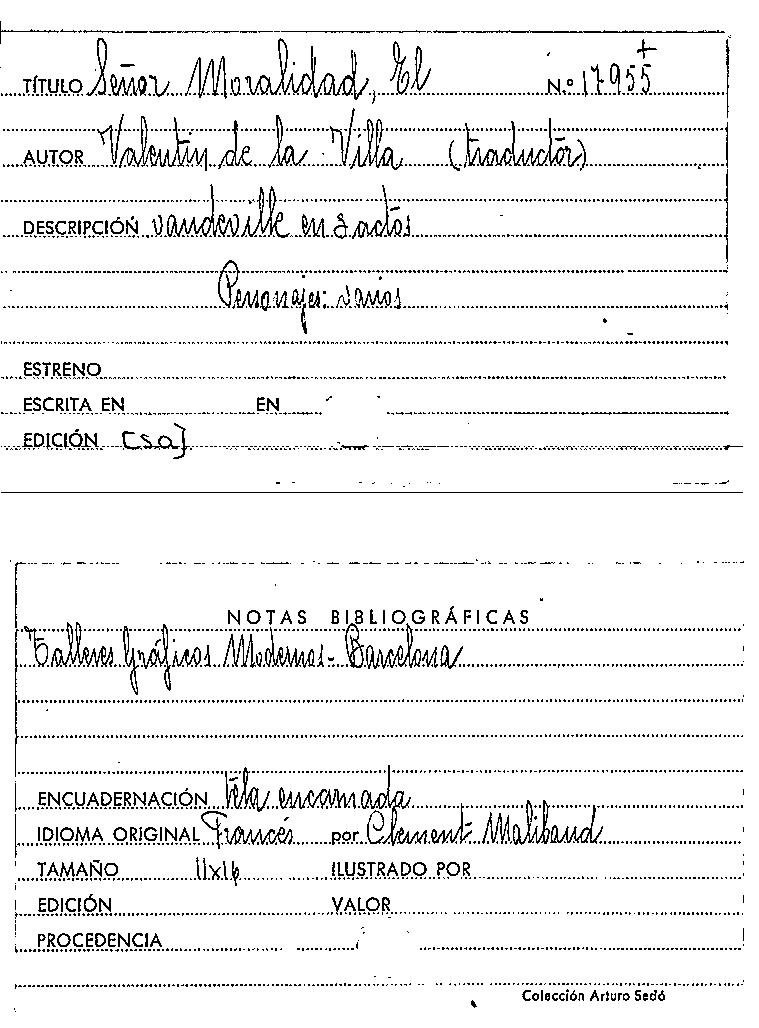 +
TÍTULO Señor Moralidad, El N.º 17955
AUTOR Valentin de la Villa (traductor)
DESCRIPCIÓN vaudeville en 3 actos
Personajes: varios
ESTRENO
ESCRITA EN EN
EDICIÓN [s.a]
NOTAS BIBLIOGRÁFICAS
Talleres Gráficos Modernos - Barcelona
ENCUADERNACIÓN tela encarnada
IDIOMA ORIGINAL Francés por Clement Maliband
TAMAÑO 11x16 ILUSTRADO POR
EDICIÓN VALOR
PROCEDENCIA
Colección Arturo Sedó